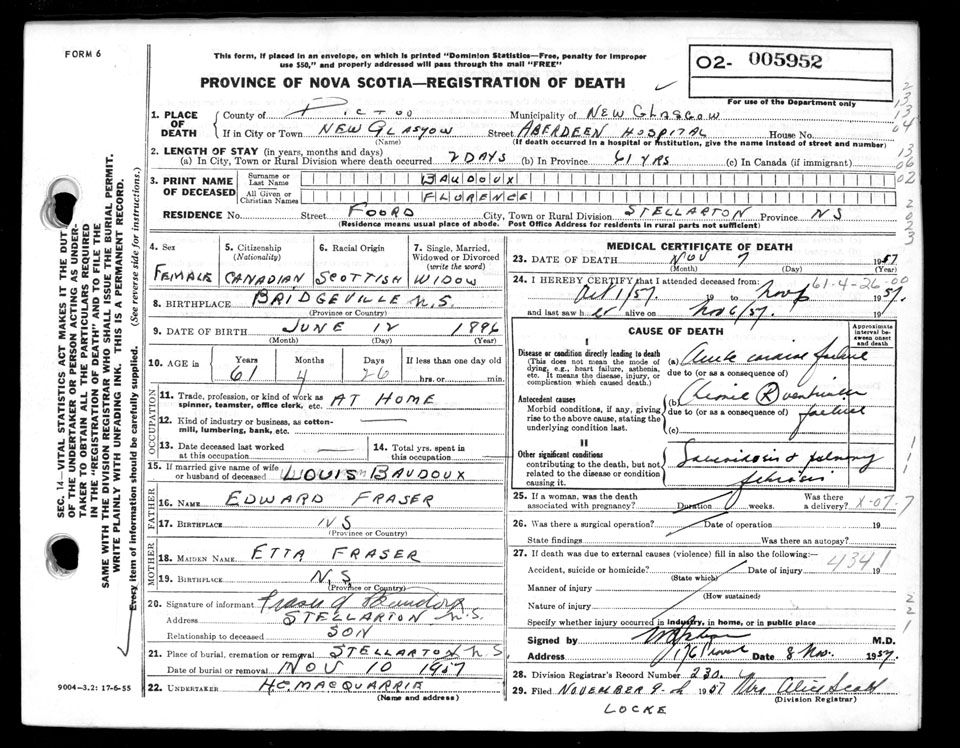 FORM 6
This form, if placed in an envelope, on which is printed "Dominion Statistics—Free, penalty for improper
use $50," and properly addressed will pass through the mail "FREE"
PROVINCE OF NOVA SCOTIA—REGISTRATION OF DEATH
O2- 005952
For use of the Department only
1. PLACE OF DEATH
County of PICTOU Municipality of NEW GLASGOW
If in City or Town NEW GLASGOW Street ABERDEEN HOSPITAL House No.
(Name) (If death occurred in a hospital or institution, give the name instead of street and number)
2. LENGTH OF STAY (in years, months and days)
(a) In City, Town or Rural Division where death occurred 2 DAYS (b) In Province 61 YRS (c) In Canada (if immigrant)
3. PRINT NAME OF DECEASED
Surname or Last Name BAUDOUX
All Given or Christian Names FLORENCE
RESIDENCE No. Street FOORD City, Town or Rural Division STELLARTON Province NS
(Residence means usual place of abode. Post Office Address for residents in rural parts not sufficient)
4. Sex 5. Citizenship (Nationality) 6. Racial Origin 7. Single, Married, Widowed or Divorced (write the word)
FEMALE CANADIAN SCOTTISH WIDOW
8. BIRTHPLACE BRIDGEVILLE N.S.
(Province or Country)
9. DATE OF BIRTH JUNE 12 1896
(Month) (Day) (Year)
10. AGE in Years Months Days If less than one day old
61 4 26 hrs. or min.
OCCUPATION
11. Trade, profession, or kind of work as spinner, teamster, office clerk, etc. AT HOME
12. Kind of industry or business, as cotton-mill, lumbering, bank, etc.
13. Date deceased last worked at this occupation 14. Total yrs. spent in this occupation
15. If married give name of wife or husband of deceased LOUIS BAUDOUX
FATHER
16. NAME EDWARD FRASER
17. BIRTHPLACE NS
(Province or Country)
MOTHER
18. MAIDEN NAME ETTA FRASER
19. BIRTHPLACE N.S
(Province or Country)
20. Signature of informant
Address STELLARTON N.S.
Relationship to deceased SON
21. Place of burial, cremation or removal STELLARTON N S
Date of burial or removal NOV 10 1957
22. UNDERTAKER H.C. MACQUARRIE
(Name and address)
MEDICAL CERTIFICATE OF DEATH
23. DATE OF DEATH NOV 7 1957
(Month) (Day) (Year)
24. I HEREBY CERTIFY that I attended deceased from: 61-4-26-00
Oct 1/57. 19 to Nov 6 1957.
and last saw her alive on Nov 6/57.
CAUSE OF DEATH
Approximate interval between onset and death
I
Disease or condition directly leading to death
(This does not mean the mode of dying, e.g., heart failure, asthenia, etc. It means the disease, injury, or complication which caused death.)
(a) Acute cardiac failure
due to (or as a consequence of)
Antecedent causes
Morbid conditions, if any, giving rise to the above cause, stating the underlying condition last.
(b) Chronic R ventricular
due to (or as a consequence of) failure
(c)
II
Other significant conditions
contributing to the death, but not related to the disease or condition causing it.
Sarcoidosis & pulmonary
fibrosis
25. If a woman, was the death associated with pregnancy? Duration 0 weeks. Was there a delivery? X-07-7
26. Was there a surgical operation? Date of operation 19
State findings Was there an autopsy?
27. If death was due to external causes (violence) fill in also the following:—
4341
Accident, suicide or homicide? Date of injury 19
(State which)
Manner of injury
(How sustained)
Nature of injury
Specify whether injury occurred in industry, in home, or in public place
Signed by M.D.
Address Date 8 Nov. 1957.
28. Division Registrar's Record Number 230.
29. Filed NOVEMBER 9th 1957 Mrs Alice Scott
(Division Registrar)
LOCKE
9004-3.2: 17-6-55
SEC. 14—VITAL STATISTICS ACT MAKES IT THE DUTY
OF THE UNDERTAKER OR PERSON ACTING AS UNDER-
TAKER TO OBTAIN ALL THE PARTICULARS REQUIRED
IN THE "REGISTRATION OF DEATH" AND TO FILE THE
SAME WITH THE DIVISION REGISTRAR WHO SHALL ISSUE THE BURIAL PERMIT.
WRITE PLAINLY WITH UNFADING INK. THIS IS A PERMANENT RECORD.
Every item of information should be carefully supplied. (See reverse side for instructions.)